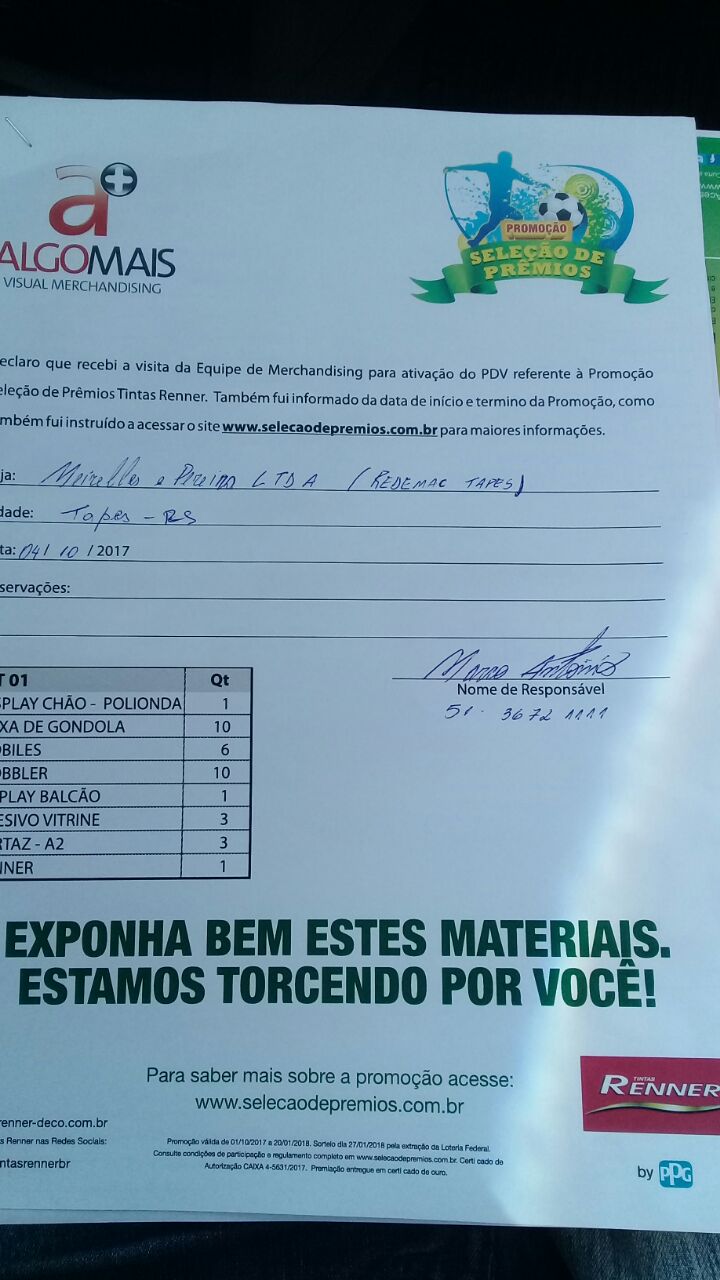 a+
ALGOMAIS
VISUAL MERCHANDISING
PROMOÇÃO
SELEÇÃO DE
PRÊMIOS
eclaro que recebi a visita da Equipe de Merchandising para ativação do PDV referente à Promoção
eleção de Prêmios Tintas Renner. Também fui informado da data de início e termino da Promoção, como
mbém fui instruído a acessar o site www.selecaodepremios.com.br para maiores informações.
ja: Meirelles e Pereira LTDA (REDEMAC TAPES)
dade: Tapes - RS
ta: 04/ 10 / 2017
servações:
Marco Antonio
Nome de Responsável
51. 3672 1111
T 01 Qt
SPLAY CHÃO - POLIONDA 1
XA DE GONDOLA 10
OBILES 6
OBBLER 10
SPLAY BALCÃO 1
ESIVO VITRINE 3
RTAZ - A2 3
NNER 1
EXPONHA BEM ESTES MATERIAIS.
ESTAMOS TORCENDO POR VOCÊ!
Para saber mais sobre a promoção acesse:
www.selecaodepremios.com.br
TINTAS
RENNER
renner-deco.com.br
s Renner nas Redes Sociais:
ntasrennerbr
Promoção válida de 01/10/2017 a 20/01/2018. Sorteio dia 27/01/2018 pela extração da Loteria Federal.
Consulte condições de participação e regulamento completo em www.selecaodepremios.com.br. Certi cado de
Autorização CAIXA 4-5631/2017. Premiação entregue em certi cado de ouro.
by PPG